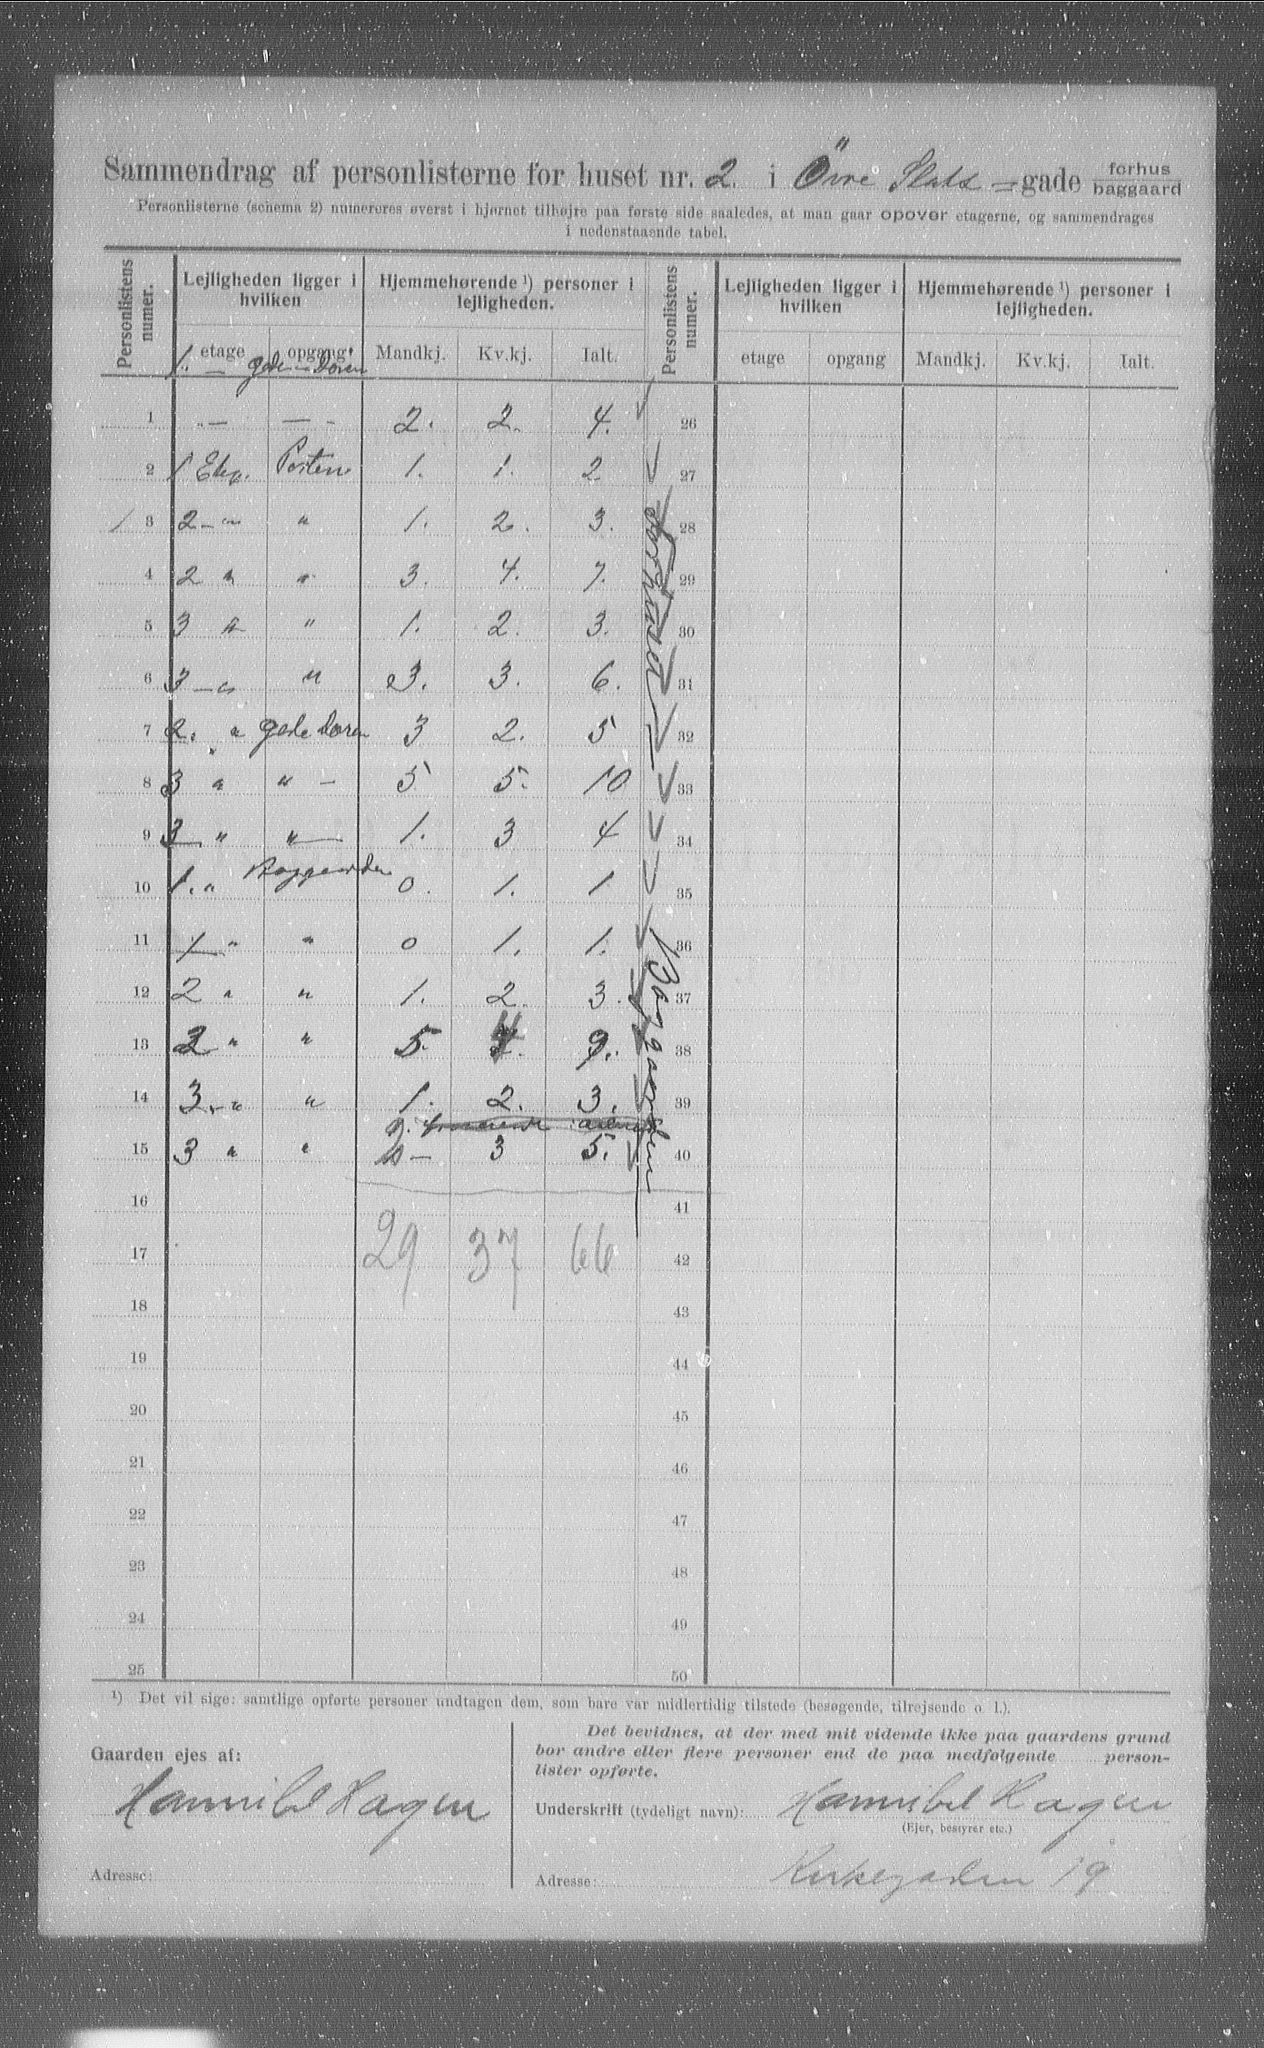 Sammendrag af personlisterne for huset nr. 2. i Övre Slots-gade forhus baggaard
Personlisterne (schema 2) numereres øverst i hjørnet tilhøjre paa første side saaledes, at man gaar opover etagerne, og sammendrages
i nedenstaaende tabel.
Personlistens numer. Lejligheden ligger i hvilken Hjemmehørende ¹) personer i lejligheden. Personlistens numer. Lejligheden ligger i hvilken Hjemmehørende ¹) personer i lejligheden.
etage opgang Mandkj. Kv.kj. Ialt. etage opgang Mandkj. Kv.kj. Ialt.
1. — gade-doren
1 „— — „ 2. 2. 4. 26
2 1 Etg. Porten 1. 1. 2 27
3 2 — „ „ 1. 2. 3. 28
4 2 „ „ 3. 4. 7. 29
5 3 „ „ 1. 2. 3. 30
6 3 — „ „ 3. 3. 6. 31
7 2. „ gade doren 3 2. 5 32
8 3 „ „ — 5 5. 10 33
9 3 „ „ 1. 3 4 34
10 1. „ Baggaarden 0. 1. 1 35
11 1 „ „ 0 1. 1. 36
12 2 „ „ 1. 2. 3. 37
13 2 „ „ 5. 4 9. 38
14 3. „ „ 1. 2. 3. 39
15 3 „ „ 2. — 3 5. 40
forhuset
Baggaarden
16 41
17 29 37 66 42
18 43
19 44
20 45
21 46
22 47
23 48
24 49
25 50
¹) Det vil sige: samtlige opførte personer undtagen dem, som bare var midlertidig tilstede (besøgende, tilrejsende o. l.).
Gaarden ejes af:
Hannibal Hagen
Adresse:
Det bevidnes, at der med mit vidende ikke paa gaardens grund
bor andre eller flere personer end de paa medfølgende person-
lister opførte.
Underskrift (tydeligt navn): Hannibal Hagen
(Ejer, bestyrer etc.)
Adresse: Kirkegaden 19